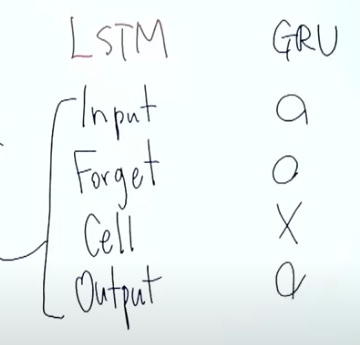 LSTM GRU
Input O
Forget O
Cell X
Output O